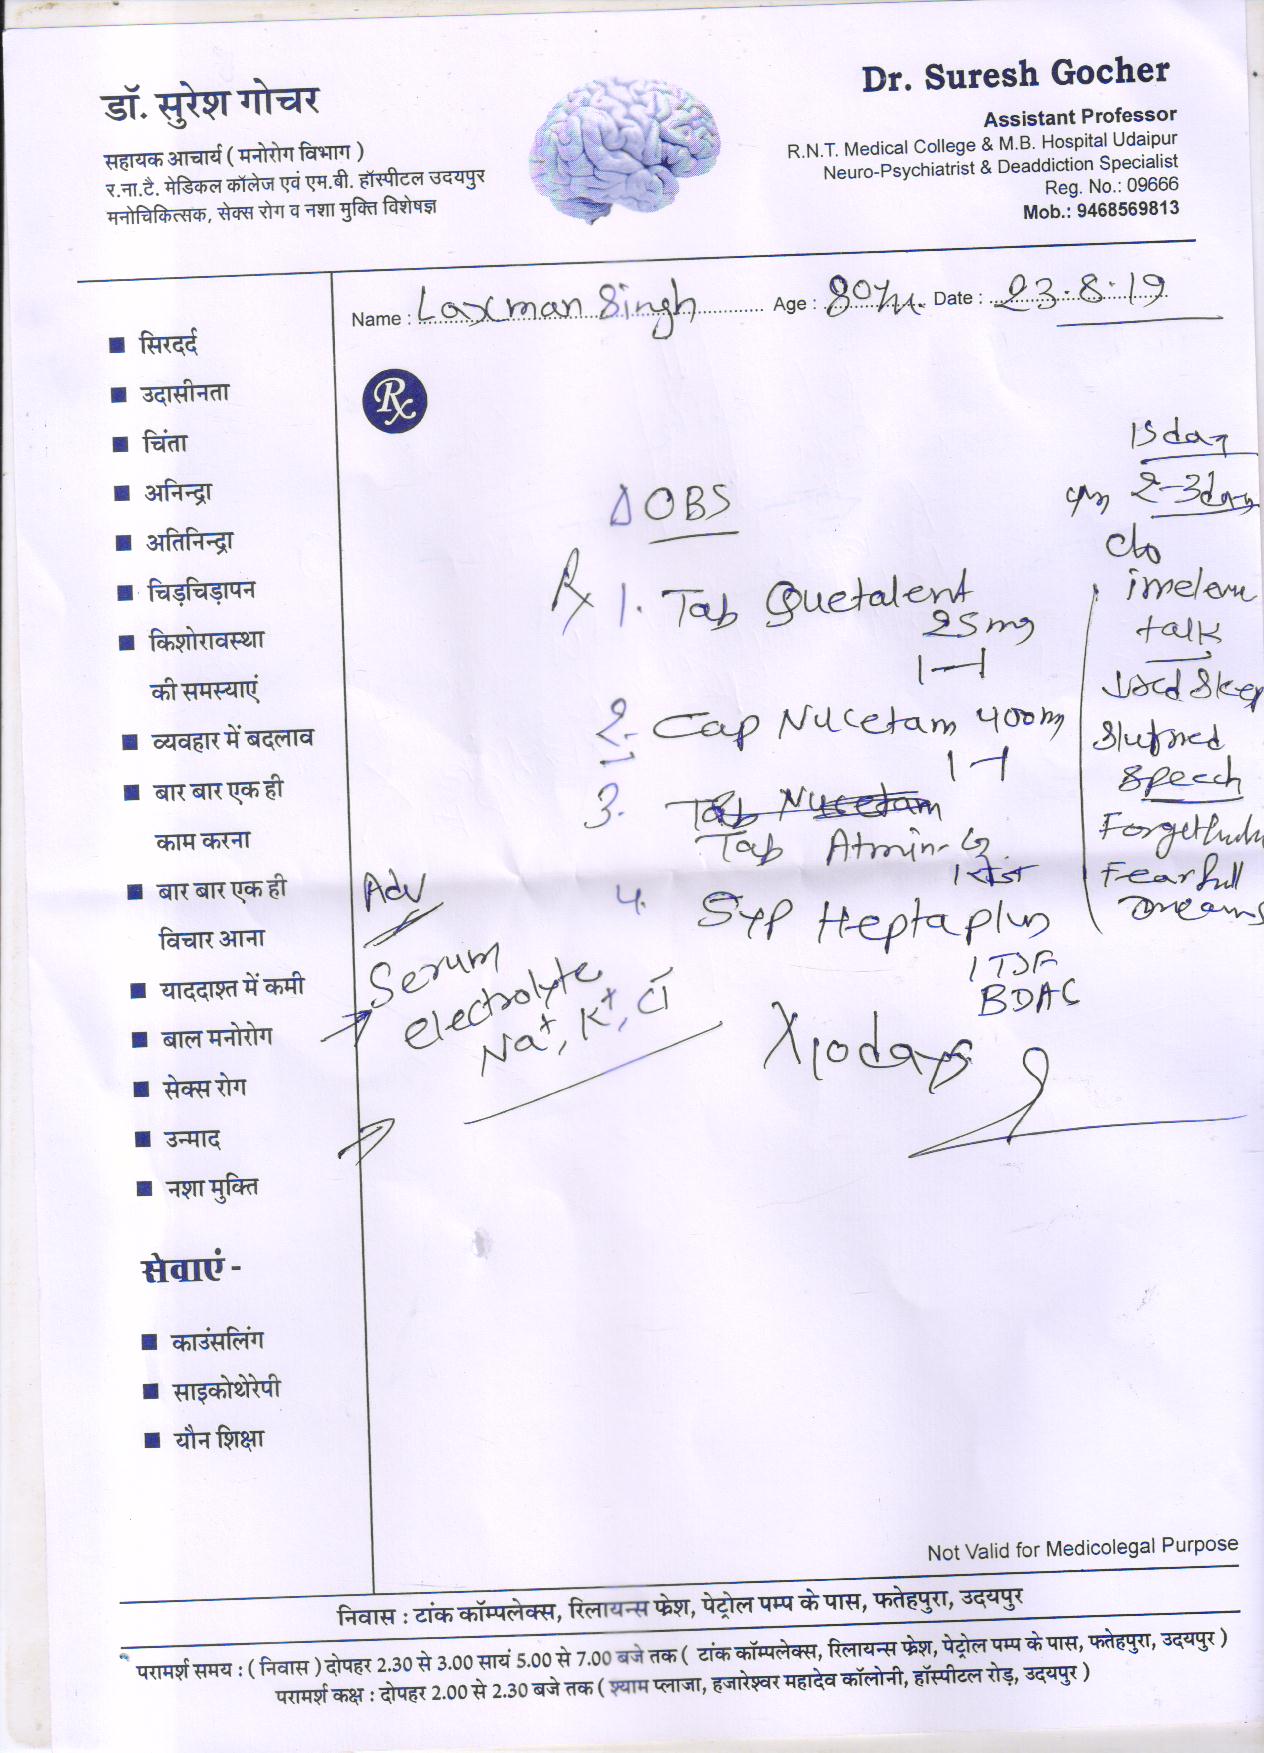 डॉ. सुरेश गोचर
सहायक आचार्य ( मनोरोग विभाग )
र.ना.टै. मेडिकल कॉलेज एवं एम.बी. हॉस्पीटल उदयपुर
मनोचिकित्सक, सेक्स रोग व नशा मुक्ति विशेषज्ञ
Dr. Suresh Gocher
Assistant Professor
R.N.T. Medical College & M.B. Hospital Udaipur
Neuro-Psychiatrist & Deaddiction Specialist
Reg. No.: 09666
Mob.: 9468569813
Name : Laxman Singh Age : 80/m Date : 23.8.19
■ सिरदर्द
■ उदासीनता
■ चिंता
■ अनिन्द्रा
■ अतिनिन्द्रा
■ चिड़चिड़ापन
■ किशोरावस्था
की समस्याएं
■ व्यवहार में बदलाव
■ बार बार एक ही
काम करना
■ बार बार एक ही
विचार आना
■ याददाश्त में कमी
■ बाल मनोरोग
■ सेक्स रोग
■ उन्माद
■ नशा मुक्ति
सेवाएं -
■ काउंसलिंग
■ साइकोथेरेपी
■ यौन शिक्षा
Rx
Δ OBS
Rx 1. Tab Quetalent
25mg
1-1
2. Cap Nucetam 400m
1-1
3. Tab Nucetam
Tab Atmin-G
1 रोज
4. Syp Heptaplus
1 TSF
BDAC
X10days
15day
2-3days
c/o
talk
Sleep
Slurred
Speech
Fearfull
Dreams
Adv
Serum
electrolyte
Na+, K+, Cl-
Not Valid for Medicolegal Purpose
निवास : टांक कॉम्पलेक्स, रिलायन्स फ्रेश, पेट्रोल पम्प के पास, फतेहपुरा, उदयपुर
परामर्श समय : ( निवास ) दोपहर 2.30 से 3.00 सायं 5.00 से 7.00 बजे तक ( टांक कॉम्पलेक्स, रिलायन्स फ्रेश, पेट्रोल पम्प के पास, फतेहपुरा, उदयपुर )
परामर्श कक्ष : दोपहर 2.00 से 2.30 बजे तक ( श्याम प्लाजा, हजारेश्वर महादेव कॉलोनी, हॉस्पीटल रोड़, उदयपुर )